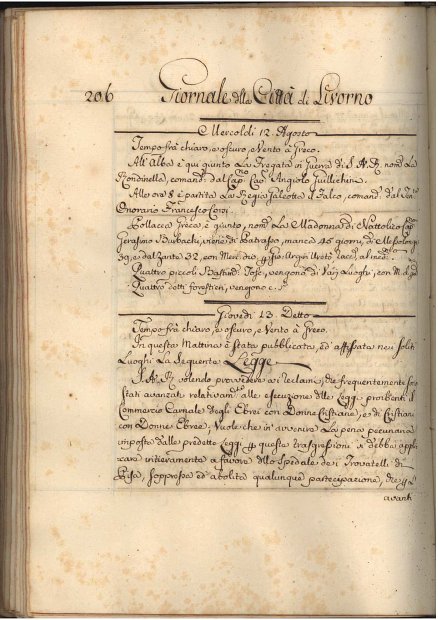 206 Giornale della Città di Livorno
Mercoldi 12. Agosto
Tempo frà chiaro, e oscuro, e Vento à Greco.
All'Alba è qui giunto La Fregata di Guerra di S. A. R. nom. La
Rondinella, comand. dal Cap. Cav. Angiolo Guillichini.
Alle ore 8 è partita La Regia Galeotta il Falco, comand. dal
Onorario Francesco Corsi.
Pollacca Greca, è giunto, nom. La Madonna di
Gerasimo viene di Patrasso, manca 45 giorni, di
39, e dal Zante 32, con
Quattro piccoli Bastim. Tosc. vengono di Varj Luoghi, con M.
Quattro detti forestieri, vengono c. s.
Giovedi 13. Detto
Tempo frà chiaro, e oscuro, e Vento à Greco.
In questa Mattina è stata pubblicata, ed affissata nei soliti
Luoghi La Seguente Legge
S. A. R. volendo provvedere ai reclami, che frequentemente sono
stati avanzati relativam. alle esecuzione delle Leggi proibenti il
Commercio Carnale degli Ebrei con Donne Cristiane, e di Cristiani
con Donne Ebree, Vuole che in avvenire La pena pecuniaria
imposta dalle predette Leggi per questa trasgressioni si debba appli
care intieramente a favore dello Spedale dei Trovatelli di
Pisa, soppressa ed abolita qualunque partecipazione, che p.
avanti